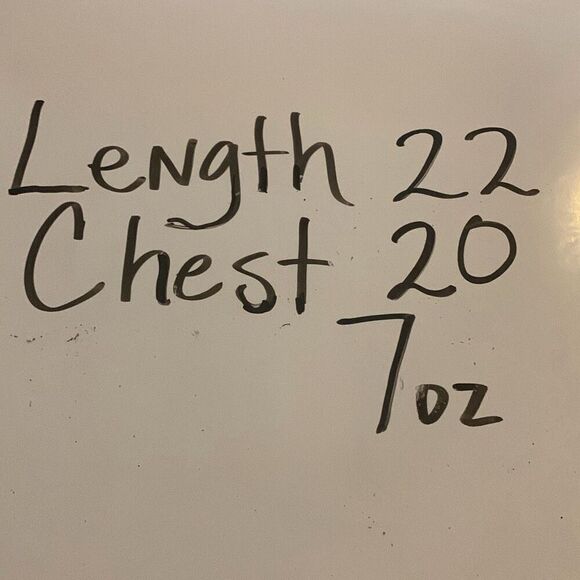 Length 22
Chest 20
7oz